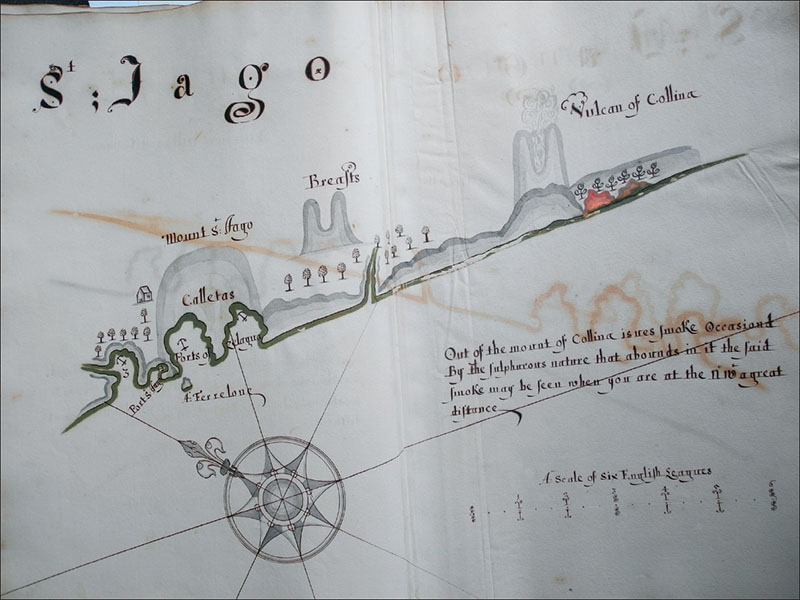 St; Jago
Vulcan of Collina
Breasts
Mount St: Jago
Calletas
Ports of
A Ferrelone
Out of the mount of Collina issues smoke Occasiond
By the sulphurous nature that abounds in it the said
smoke may be seen when you are at the a great
distance
A Scale of Six English Leagues
1 2 3 4 5 6